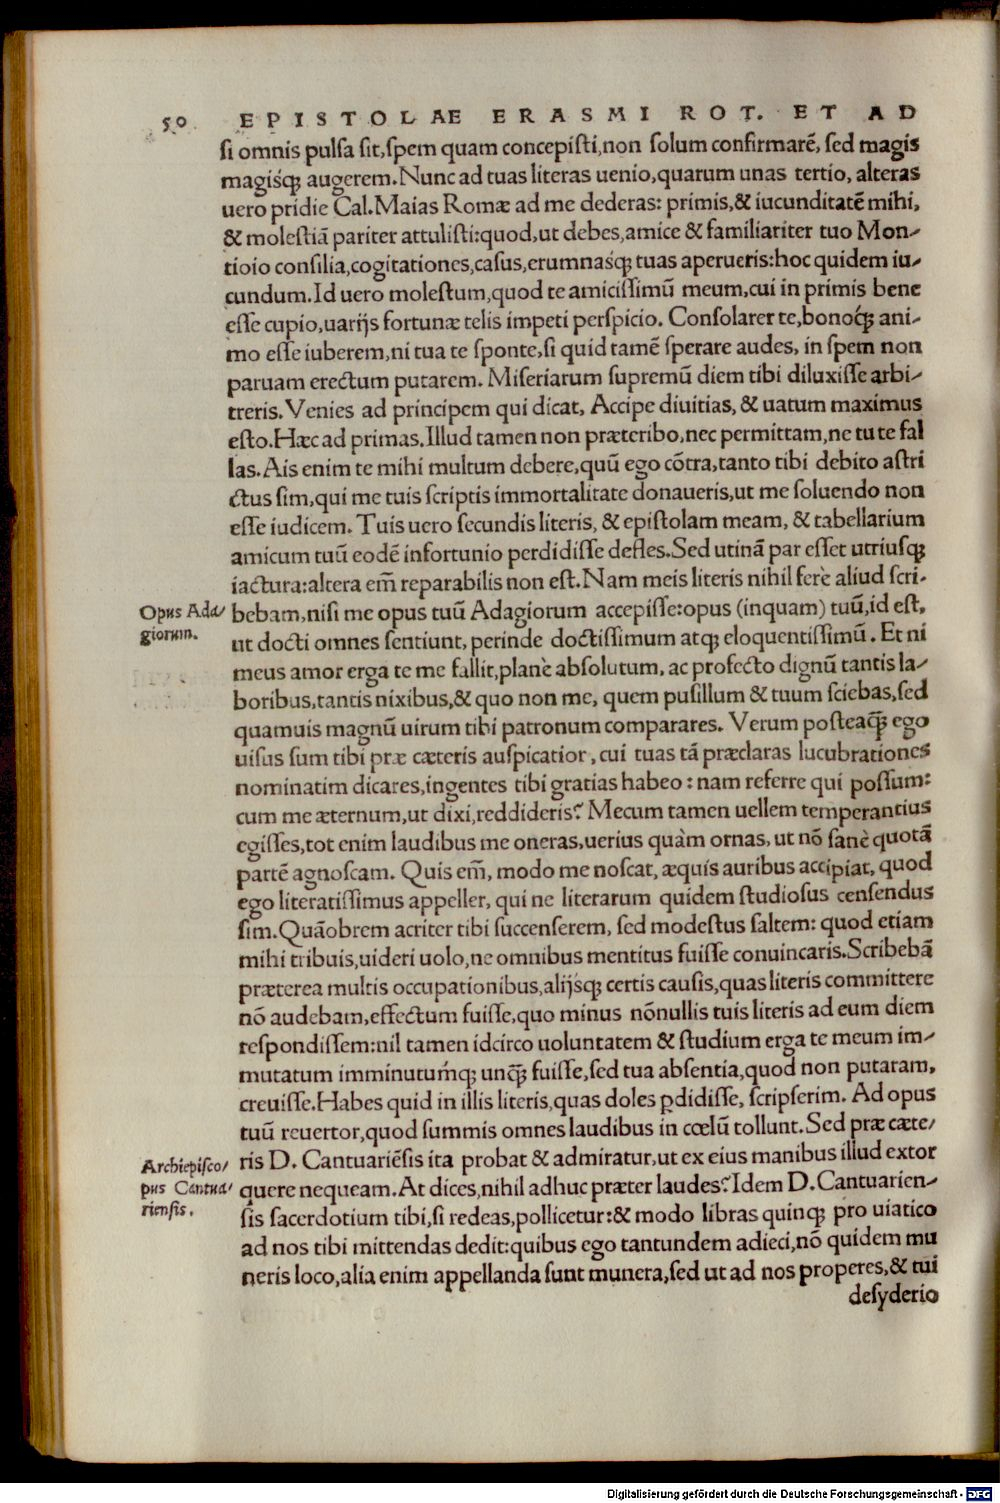 50 EPISTOLAE ERASMI ROT. ET AD
si omnis pulsa sit,spem quam concepisti,non solum confirmarẽ, sed magis
magisq́; augerem. Nunc ad tuas literas uenio,quarum unas tertio, alteras
uero pridie Cal.Maias Romæ ad me dederas: primis,& iucunditatẽ mihi,
& molestiã pariter attulisti:quod,ut debes,amice & familiariter tuo Mon-
tioio consilia,cogitationes,casus,erumnasq́; tuas aperueris:hoc quidem iu-
cundum. Id uero molestum,quod te amicissimũ meum,cui in primis bene
esse cupio,uarijs fortunæ telis impeti perspicio. Consolarer te,bonoq́; ani-
mo esse iuberem,ni tua te sponte,si quid tamẽ sperare audes, in spem non
paruam erectum putarem. Miseriarum supremũ diem tibi diluxisse arbi-
treris. Venies ad principem qui dicat, Accipe diuitias, & uatum maximus
esto. Hæc ad primas. Illud tamen non præteribo,nec permittam,ne tu te fal
las. Ais enim te mihi multum debere,quũ ego cõtra,tanto tibi debito astri
ctus sim,qui me tuis scriptis immortalitate donaueris,ut me soluendo non
esse iudicem. Tuis uero secundis literis, & epistolam meam, & tabellarium
amicum tuũ eodẽ infortunio perdidisse defles. Sed utinã par esset utriusq;
iactura:altera em̃ reparabilis non est. Nam meis literis nihil ferè aliud scri-
Opus Ada/
giorum.
bebam,nisi me opus tuũ Adagiorum accepisse:opus (inquam) tuũ,id est,
ut docti omnes sentiunt, perinde doctissimum atq; eloquentissimũ. Et ni
meus amor erga te me fallit,planè absolutum, ac profecto dignũ tantis la-
boribus,tantis nixibus,& quo non me, quem pusillum & tuum sciebas,sed
quamuis magnũ uirum tibi patronum comparares. Verum posteaq̃; ego
uisus sum tibi præ cæteris auspicatior, cui tuas tã præclaras lucubrationes
nominatim dicares,ingentes tibi gratias habeo: nam referre qui possum:
cum me æternum,ut dixi,reddideris? Mecum tamen uellem temperantius
egisses,tot enim laudibus me oneras,uerius quàm ornas, ut nõ sanè quotã
partẽ agnoscam. Quis em̃, modo me noscat, æquis auribus accipiat, quod
ego literatissimus appeller, qui ne literarum quidem studiosus censendus
sim. Quãobrem acriter tibi succenserem, sed modestus saltem: quod etiam
mihi tribuis,uideri uolo,ne omnibus mentitus fuisse conuincaris. Scribebã
præterea multis occupationibus,alijsq́; certis causis,quas literis committere
nõ audebam,effectum fuisse,quo minus nõnullis tuis literis ad eum diem
respondissem:nil tamen idcirco uoluntatem & studium erga te meum im-
mutatum imminutumq́; unq̃; fuisse,sed tua absentia,quod non putaram,
creuisse. Habes quid in illis literis,quas doles ꝑdidisse, scripserim. Ad opus
tuũ reuertor,quod summis omnes laudibus in cœlũ tollunt. Sed præ cæte-
Archiepisco/
pus Cantua/
riensis.
ris D. Cantuariẽsis ita probat & admiratur,ut ex eius manibus illud extor
quere nequeam. At dices,nihil adhuc præter laudes? Idem D. Cantuarien-
sis sacerdotium tibi,si redeas,pollicetur:& modo libras quinq; pro uiatico
ad nos tibi mittendas dedit:quibus ego tantundem adieci,nõ quidem mu
neris loco,alia enim appellanda sunt munera,sed ut ad nos properes,& tui
desyderio
Digitalisierung gefördert durch die Deutsche Forschungsgemeinschaft - DFG